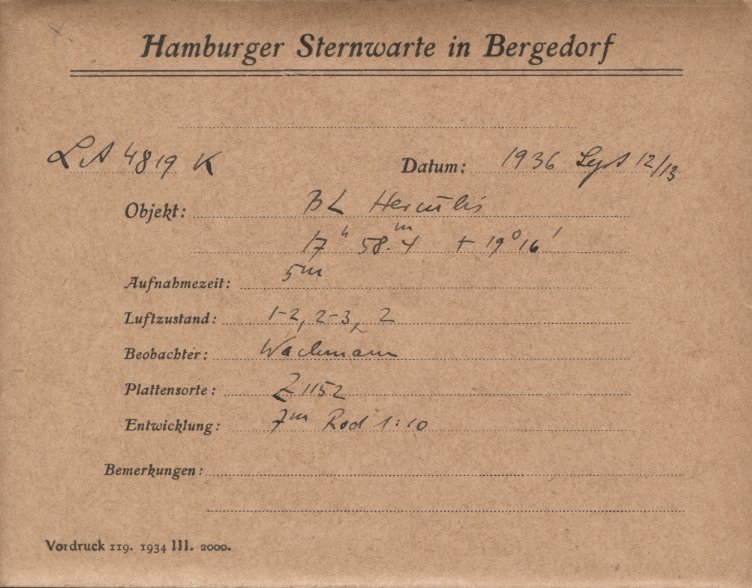 Hamburger Sternwarte in Bergedorf
LA 4819 K Datum: 1936 Sept 12/13
Objekt: BL Herculis
17ʰ 58.ᵐ4 + 19° 16'
Aufnahmezeit: 5ᵐ
Luftzustand: 1-2, 2-3, 2
Beobachter: Wachmann
Plattensorte: Z 1152
Entwicklung: 7ᵐ Rod 1:10
Bemerkungen:
Vordruck 119. 1934 III. 2000.